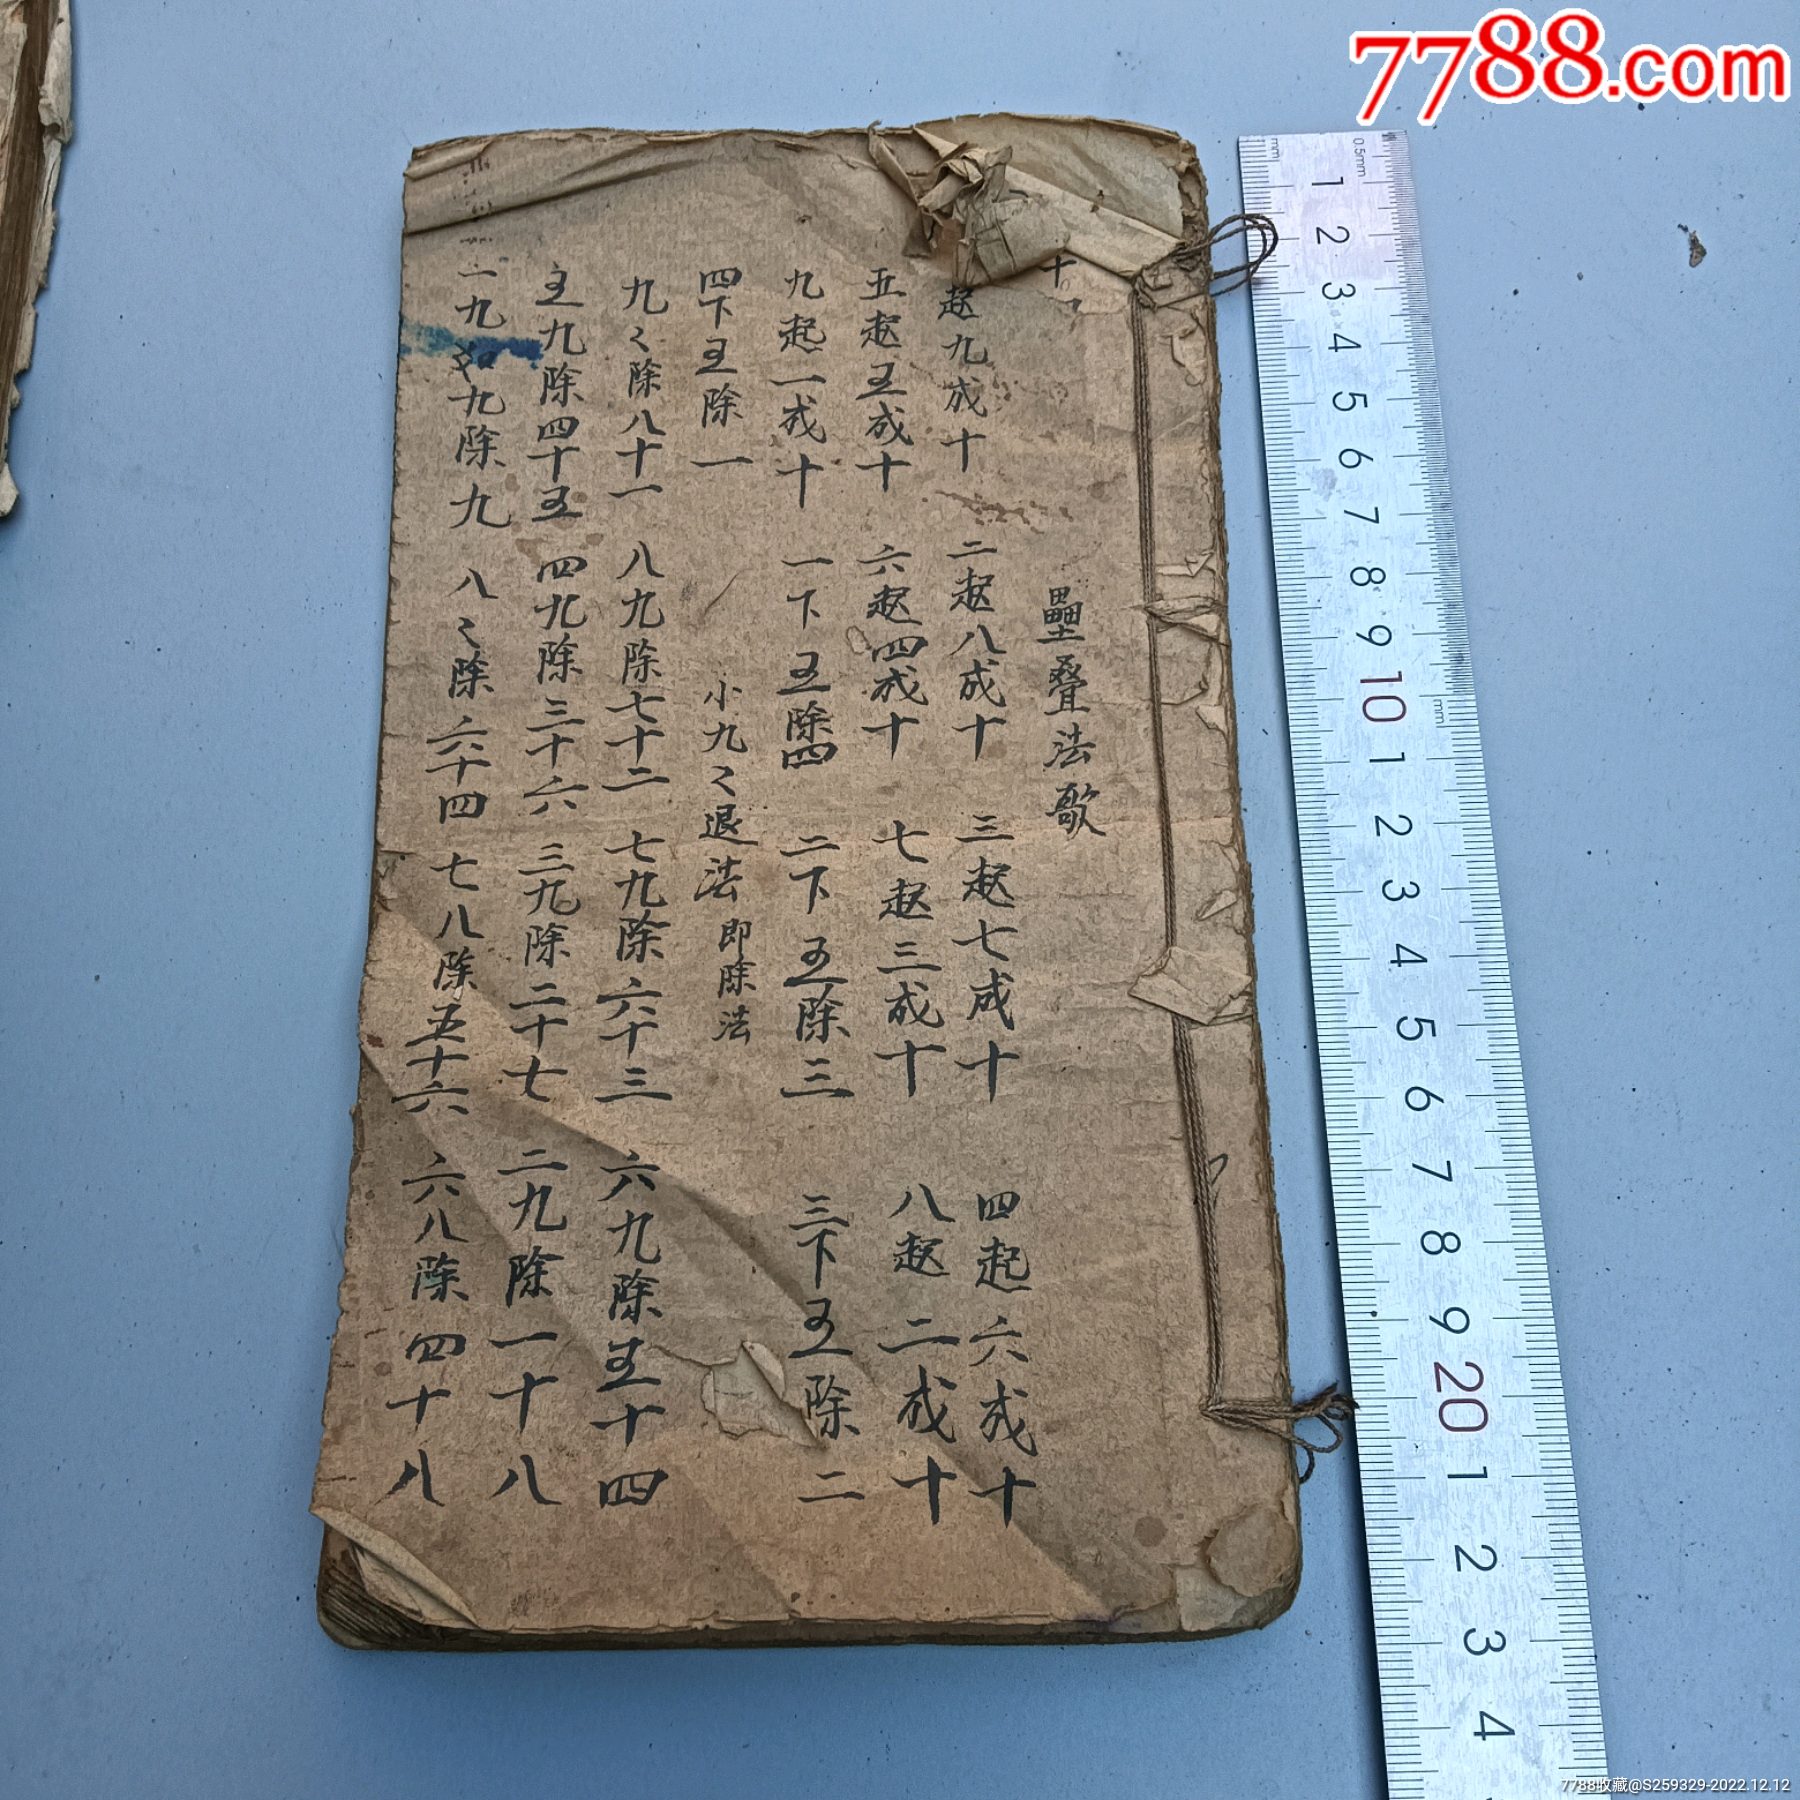 7788.com
壘叠法歌
起九成十 二起八成十 三起七成十 四起六成十
五起五成十 六起四成十 七起三成十 八起二成十
九起一成十 一下五除四 二下五除三 三下五除二
四下五除一 小九〻退法 即除法
九〻除八十一 八九除七十二 七九除六十三 六九除五十四
五九除四十五 四九除三十六 三九除二十七 二九除一十八
一九如九除九 八〻除六十四 七八除五十六 六八除四十八
mm 0.5mm
1 2 3 4 5 6 7 8 9 10 1 2 3 4 5 6 7 8 9 20 1 2 3 4
mm
7788收藏@S259329-2022.12.12